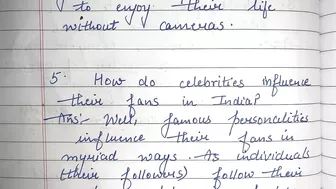 to enjoy their life
without cameras.
5. How do celebrities influence
their fans in India?
Ans: Well, famous personalities
influence their fans in
myriad ways. As individuals
(their followers) follow their